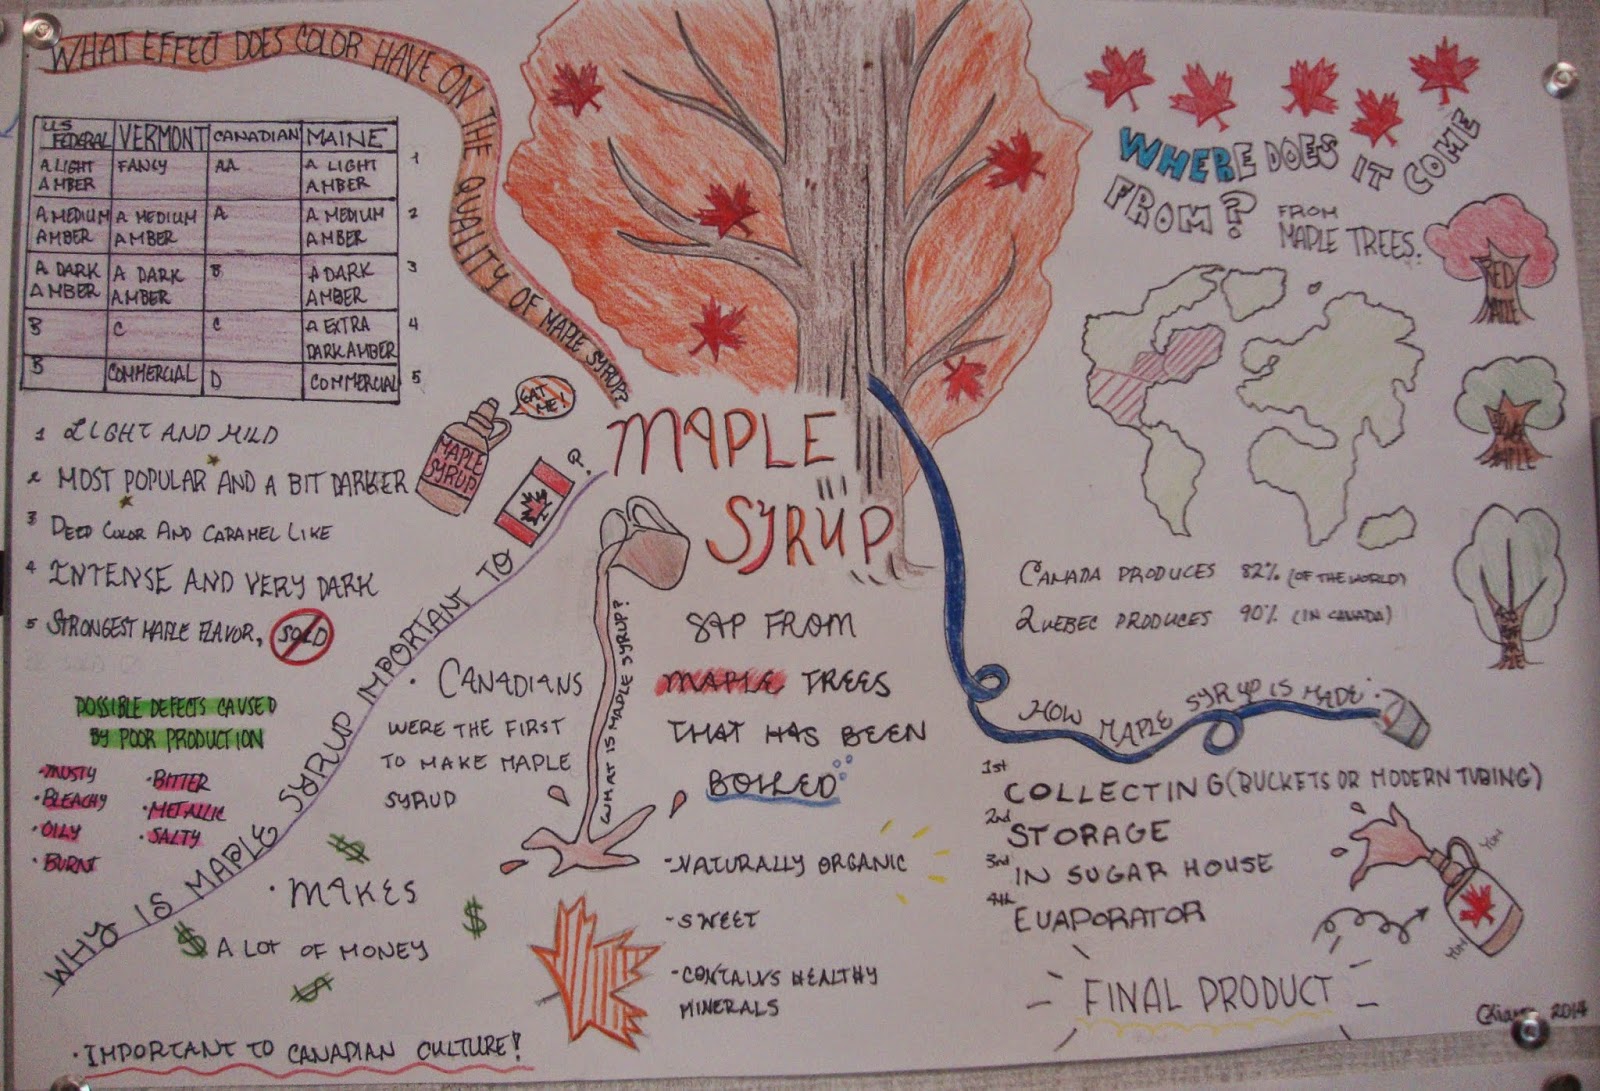 WHAT EFFECT DOES COLOR HAVE ON THE QUALITY OF MAPLE SYRUP?
US FEDERAL VERMONT CANADIAN MAINE
A LIGHT AMBER FANCY AA A LIGHT AMBER 1
A MEDIUM AMBER A MEDIUM AMBER A A MEDIUM AMBER 2
A DARK AMBER A DARK AMBER B A DARK AMBER 3
B C C A EXTRA DARK AMBER 4
B COMMERCIAL D COMMERCIAL 5
1 LIGHT AND MILD
2 MOST POPULAR AND A BIT DARKER
3 DEEP COLOR AND CARAMEL LIKE
4 INTENSE AND VERY DARK
5 STRONGEST MAPLE FLAVOR, SOLD
POSSIBLE DEFECTS CAUSED
BY POOR PRODUCTION
·MUSTY
·BLEACHY
·OILY
·BURNT
·BITTER
·METALLIC
·SALTY
EAT ME!
MAPLE SYRUP
WHY IS MAPLE SYRUP IMPORTANT TO ?
·CANADIANS
WERE THE FIRST
TO MAKE MAPLE
SYRUP
·MAKES
A LOT OF MONEY
$ $ $ $
·IMPORTANT TO CANADIAN CULTURE!
MAPLE
SYRUP
WHAT IS MAPLE SYRUP?
SAP FROM
MAPLE TREES
THAT HAS BEEN
BOILED
-NATURALLY ORGANIC
-SWEET
-CONTAINS HEALTHY
MINERALS
WHERE DOES IT COME
FROM?
FROM
MAPLE TREES.
RED
MAPLE
SILVER
MAPLE
CANADA PRODUCES 82% (OF THE WORLD)
QUEBEC PRODUCES 90% (IN CANADA)
HOW MAPLE SYRUP IS MADE:
1st COLLECTING (BUCKETS OR MODERN TUBING)
2nd STORAGE
3rd IN SUGAR HOUSE
4th EVAPORATOR
YUM
YUM
FINAL PRODUCT
2014